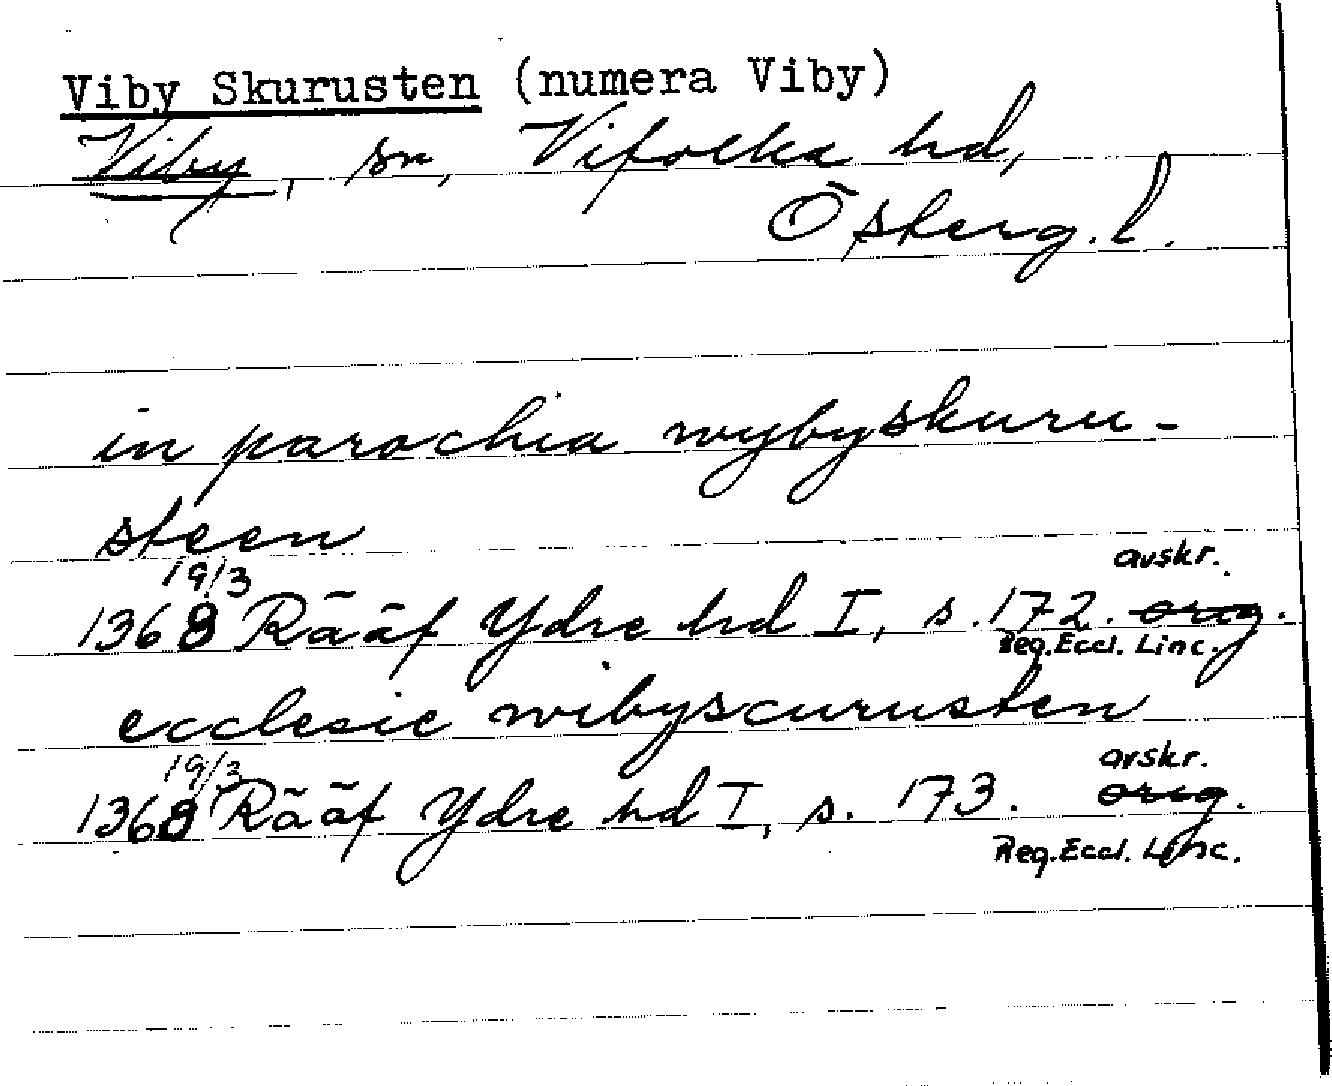 Viby Skurusten (numera Viby)
Viby, sn, Vifolka hd,
Österg. l.
in parochia wybyskuru-
steen
19/3 avskr.
1368 Rääf Ydre hd I, s. 172. orig.
Reg. Eccl. Linc.
ecclesie wibyscurusten
19/3 avskr.
1368 Rääf Ydre hd I, s. 173. orig.
Reg. Eccl. Linc.